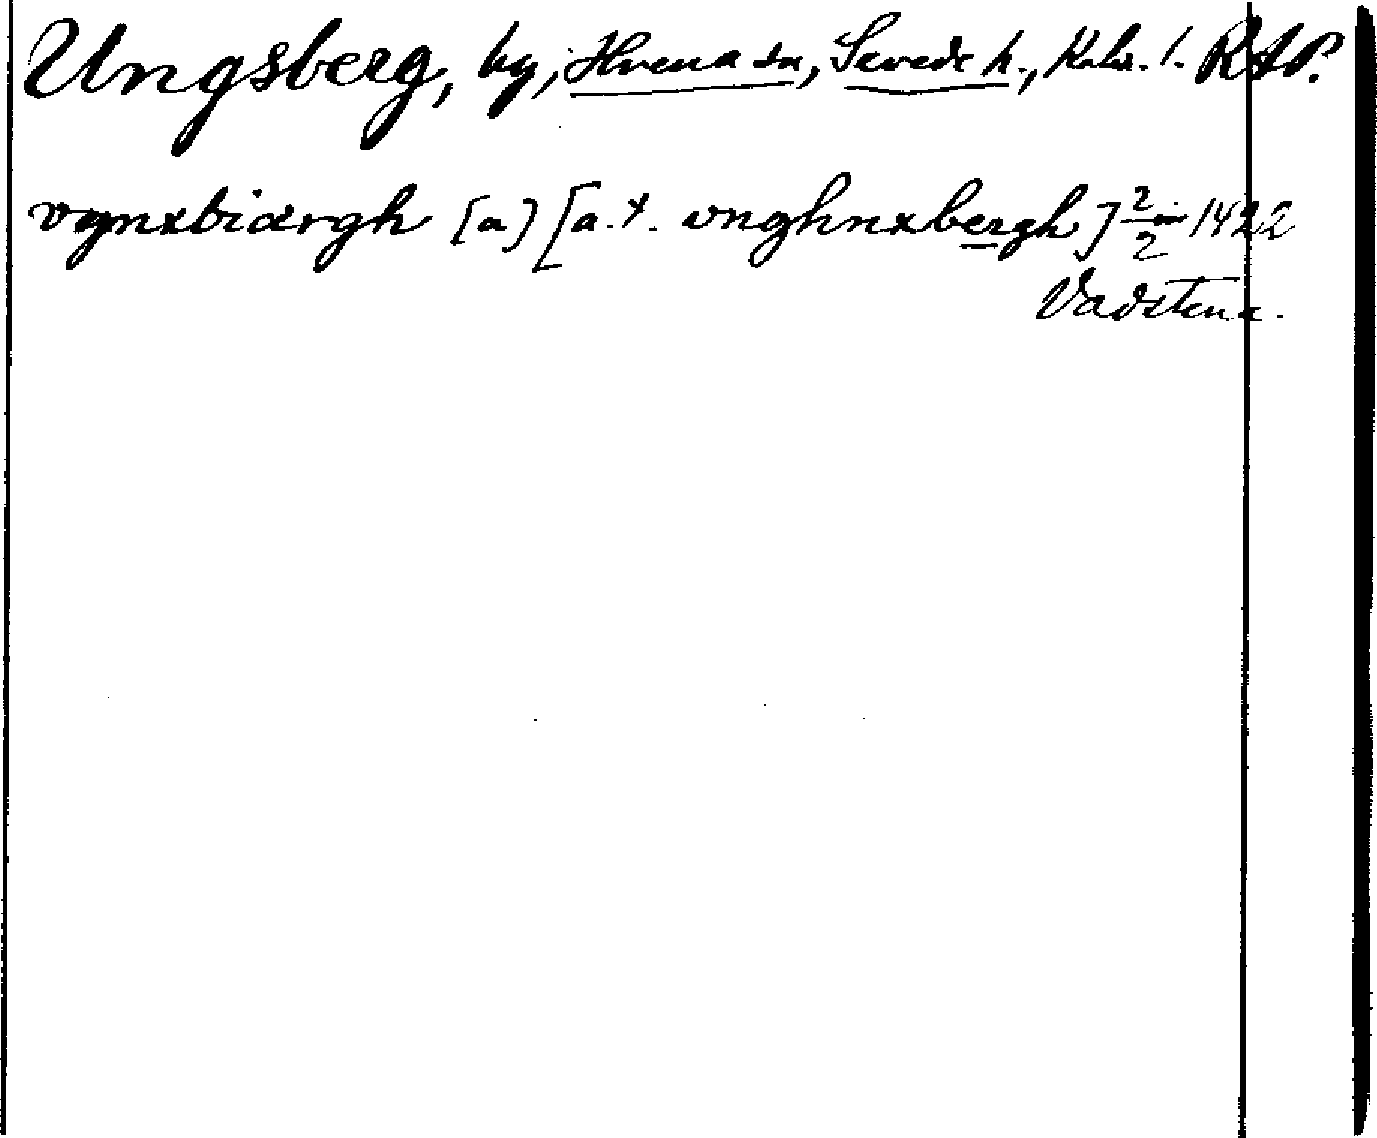 Ungsberg, by, Hvena sn, Sevede h., Kalm. l. RAP.
vgnxbiærgh (a) [a. t. vnghnxbergh] 2/2 1422
Vadstena.